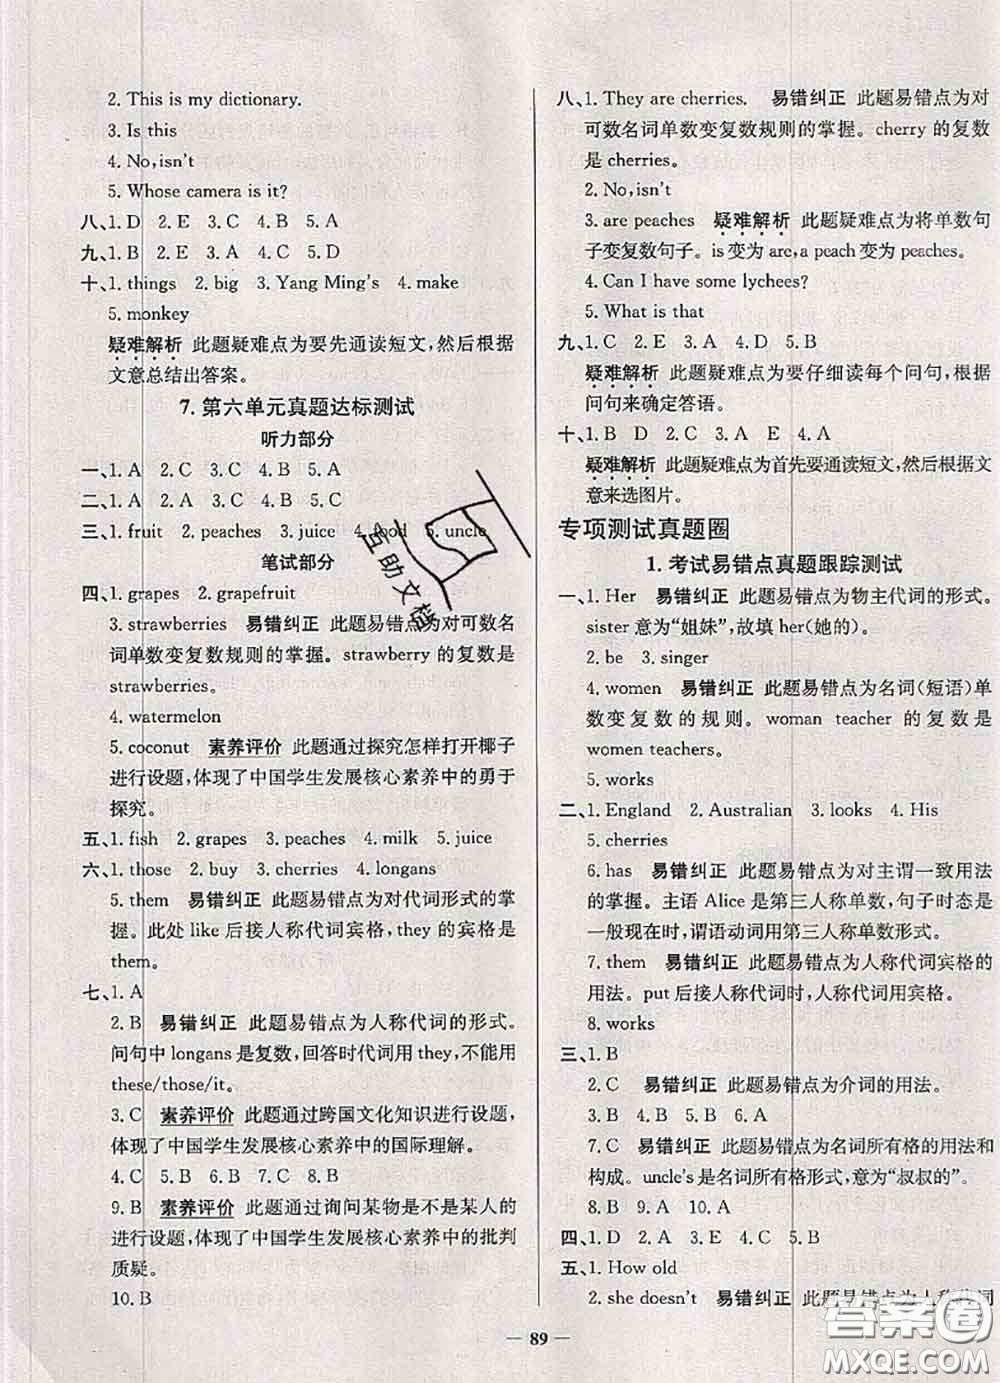 2. This is my dictionary.
3. Is this
4. No, isn't
5. Whose camera is it?
八、1. D 2. E 3. C 4. B 5. A
九、1. B 2. E 3. A 4. C 5. D
十、1. things 2. big 3. Yang Ming's 4. make
5. monkey
疑难解析 此题疑难点为要先通读短文,然后根据
文意总结出答案。
7. 第六单元真题达标测试
听力部分
一、1. A 2. C 3. C 4. B 5. C
二、1. A 2. C 3. A 4. B 5. A
三、1. fruit 2. peaches 3. juice 4. food 5. uncle
笔试部分
四、1. grapes 2. grapefruit
3. strawberries 易错纠正 此题易错点为对可数名
词单数变复数规则的掌握。strawberry 的复数是
strawberries。
4. watermelon
5. coconut 素养评价 此题通过探究怎样打开椰子
进行设题,体现了中国学生发展核心素养中的勇于
探究。
五、1. fish 2. grapes 3. peaches 4. milk 5. juice
六、1. those 2. buy 3. cherries 4. longans
5. them 易错纠正 此题易错点为对代词形式的掌
握。此处 like 后接人称代词宾格,they 的宾格是
them。
七、1. A
2. B 易错纠正 此题易错点为人称代词的形式。
问句中 longans 是复数,回答时代词用 they,不能用
these/those/it。
3. C 素养评价 此题通过跨国文化知识进行设题,
体现了中国学生发展核心素养中的国际理解。
4. C 5. B 6. B 7. C 8. B
9. B 素养评价 此题通过询问某物是不是某人的
进行设题,体现了中国学生发展核心素养中的批判
质疑。
10. B
八、1. They are cherries. 易错纠正 此题易错点为对
可数名词单数变复数规则的掌握。cherry 的复数
是 cherries。
2. No, isn't
3. are peaches 疑难解析 此题疑难点为将单数句
子变复数句子。is 变为 are, a peach 变为 peaches。
4. Can I have some lychees?
5. What is that
九、1. C 2. E 3. A 4. D 5. B
疑难解析 此题疑难点为要仔细读每个问句,根据
问句来确定答语。
十、1. B D 2. C 3. A E 4. A
疑难解析 此题疑难点为首先要通读短文,然后根据文
意来选图片。
专项测试真题圈
1. 考试易错点真题跟踪测试
一、1. Her 易错纠正 此题易错点为物主代词的形式。
sister 意为“姐妹”,故填 her(她的)。
2. be 3. singer
4. women 易错纠正 此题易错点为名词(短语)单
数变复数的规则。woman teacher 的复数是
women teachers。
5. works
二、1. England 2. Australian 3. looks 4. His
5. cherries
6. has 易错纠正 此题易错点为对主谓一致用法
的掌握。主语 Alice 是第三人称单数,句子时态是
一般现在时,谓语动词用第三人称单数形式。
7. them 易错纠正 此题易错点为人称代词宾格的
用法。put 后接人称代词时,人称代词用宾格。
8. works
三、1. B
2. C 易错纠正 此题易错点为介词的用法。
3. B 4. B 5. B 6. A
7. C 易错纠正 此题易错点为名词所有格的用法和
构成。uncle's 是名词所有格形式,意为“叔叔的”。
8. B 9. A 10. A
四、1. D 2. A 3. E 4. C 5. B
五、1. How old
2. she doesn't 易错纠正 此题易错点为人称代词
89
互助文档
答案圈
MXQE.COM